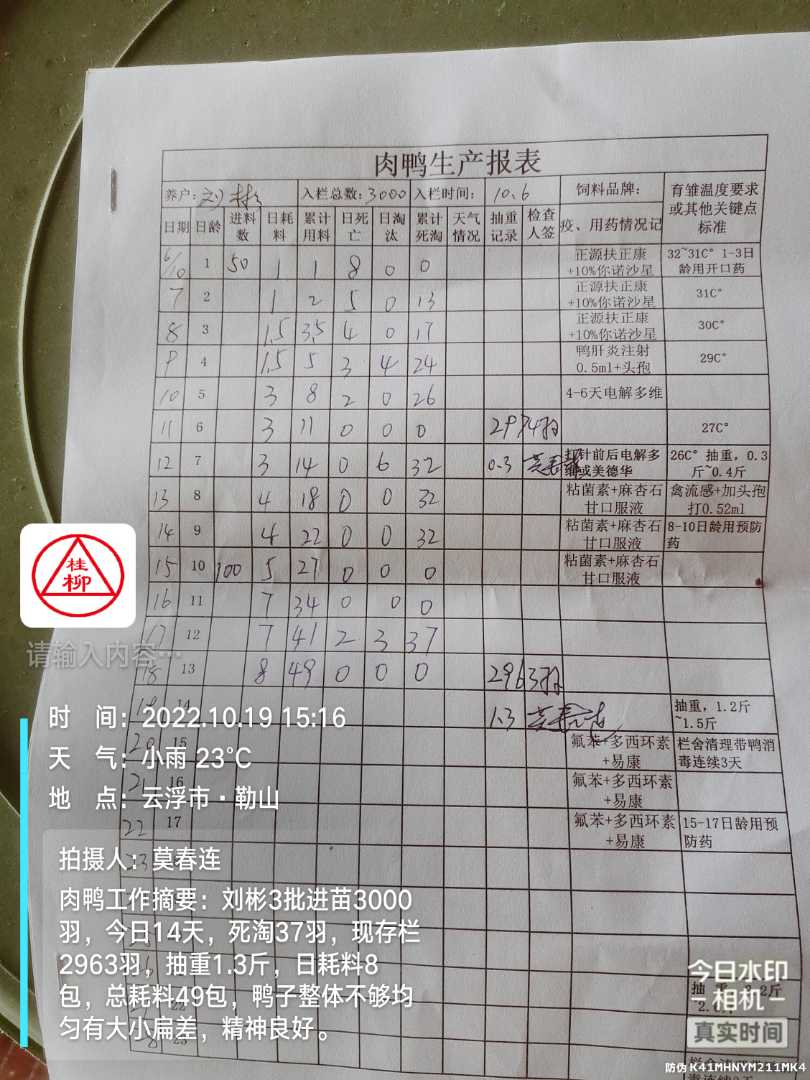 肉鸭生产报表
养户: 刘彬 入栏总数: 3000 入栏时间: 10.6 饲料品牌: 育雏温度要求或其他关键点标准
日期 日龄 进料数 日耗料 累计用料 日死亡 日淘汰 累计死淘 天气情况 抽重记录 检查人签 疫、用药情况记
6/10 1 50 1 1 8 0 0 正源扶正康+10%你诺沙星 32~31C° 1-3日龄用开口药
7 2 1 2 5 0 13 正源扶正康+10%你诺沙星 31C°
8 3 1.5 3.5 4 0 17 正源扶正康+10%你诺沙星 30C°
9 4 1.5 5 3 4 24 鸭肝炎注射0.5ml+头孢 29C°
10 5 3 8 2 0 26 4-6天电解多维
11 6 3 11 0 0 0 2974羽 27C°
12 7 3 14 0 6 32 0.3 莫春连 打针前后电解多维或美德华 26C° 抽重，0.3斤~0.4斤
13 8 4 18 0 0 32 粘菌素+麻杏石甘口服液 禽流感+加头孢打0.52ml
14 9 4 22 0 0 32 粘菌素+麻杏石甘口服液 8-10日龄用预防药
15 10 100 5 27 0 0 0 粘菌素+麻杏石甘口服液
16 11 7 34 0 0 0
17 12 7 41 2 3 37
18 13 8 49 0 0 0 2963羽
19 14 1.3 莫春连 抽重，1.2斤~1.5斤
20 15 氟苯+多西环素+易康 栏舍清理带鸭消毒连续3天
21 16 氟苯+多西环素+易康
22 17 氟苯+多西环素+易康 15-17日龄用预防药
23
桂柳
请输入内容…
时 间：2022.10.19 15:16
天 气：小雨 23℃
地 点：云浮市·勒山
拍摄人：莫春连
肉鸭工作摘要：刘彬3批进苗3000
羽，今日14天，死淘37羽，现存栏
2963羽，抽重1.3斤，日耗料8
包，总耗料49包，鸭子整体不够均
匀有大小扁差，精神良好。
今日水印
相机
真实时间
防伪 K41MHNYM211MK4